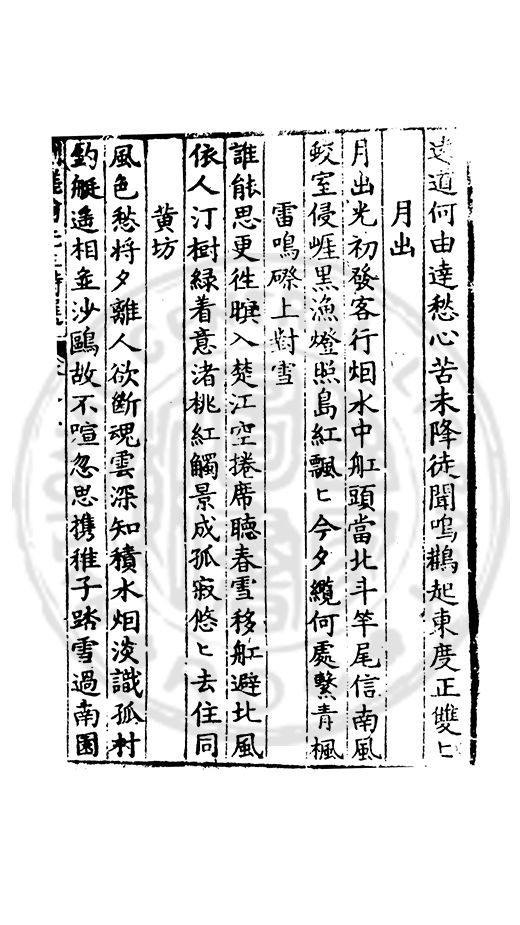 遠道何由達愁心苦未降徒聞鳴鷫起東度正雙〻
月出
月出光初發客行烟水中舡頭當北斗竿尾信南風
蛟室侵崕黒漁燈照島紅飄〻今夕纜何處繫青楓
雷鳴磜上對雪
誰能思更徃暝入楚江空捲席聴春雪移舡避北風
依人汀樹緑着意渚桃紅觸景成孤寂悠〻去住同
黄坊
風色愁将夕離人欲斷魂雲深知積水烟淡識孤村
釣艇遥相並沙鷗故不喧忽思携稚子踏雪過南園